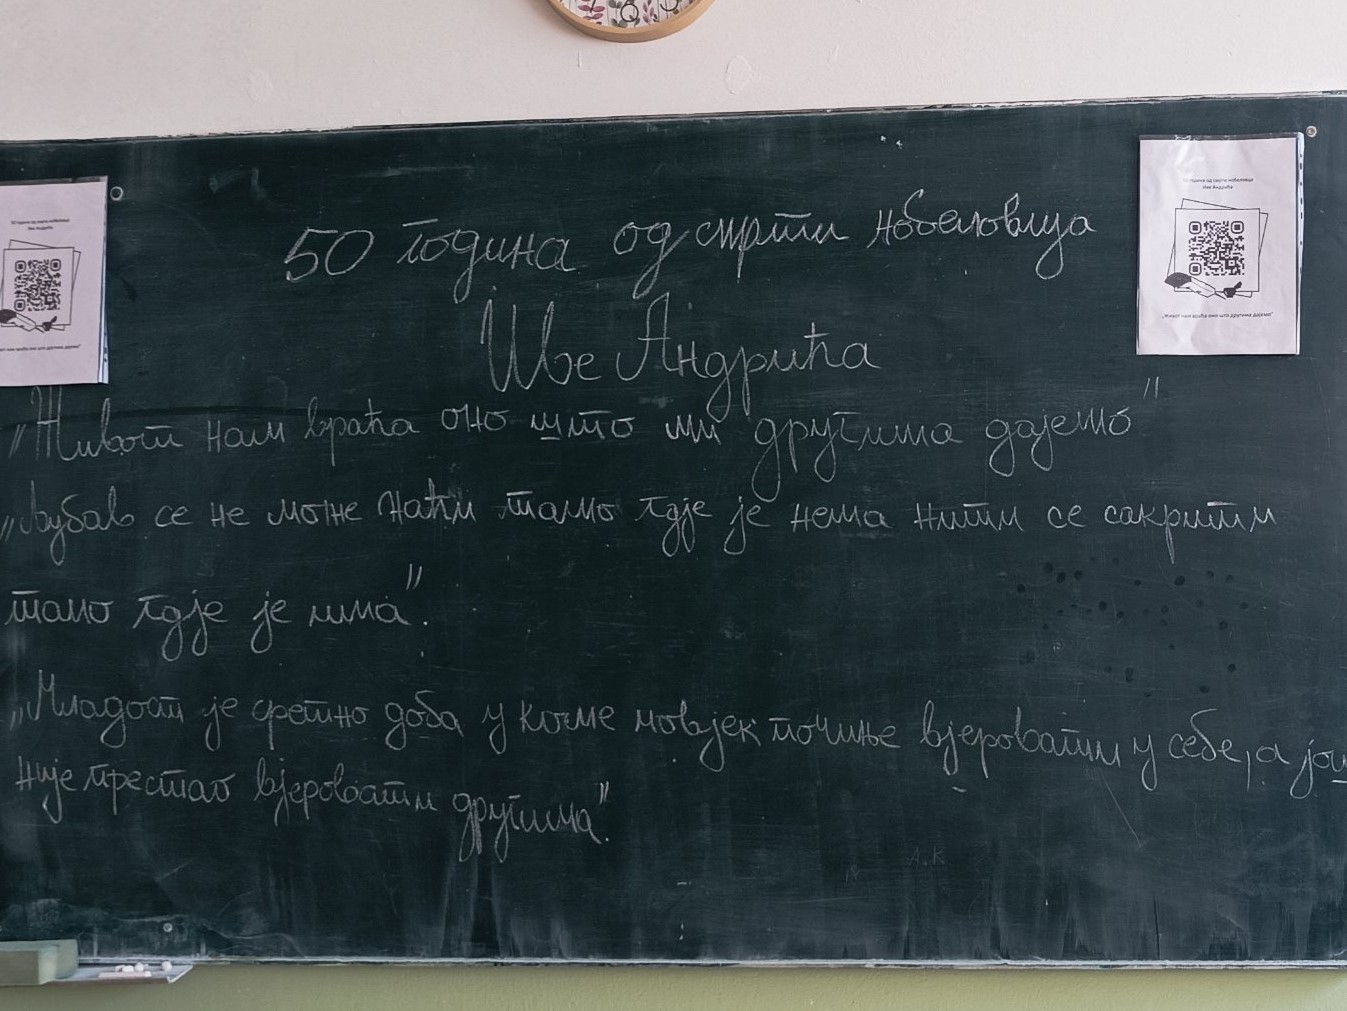 50 година од смрти нобеловца
Иве Андрића
„Живот нам враћа оно што ми другима дајемо"
„Љубав се не може наћи тамо гдје је нема нити се сакрити
тамо гдје је има".
„Младост је сретно доба у коме човјек почиње вјеровати у себе, а још
није престао вјеровати другима".
А.К
50 година од смрти нобеловца
Иве Андрића
50 година од смрти нобеловца
Иве Андрића
„Живот нам враћа оно што другима дајемо"